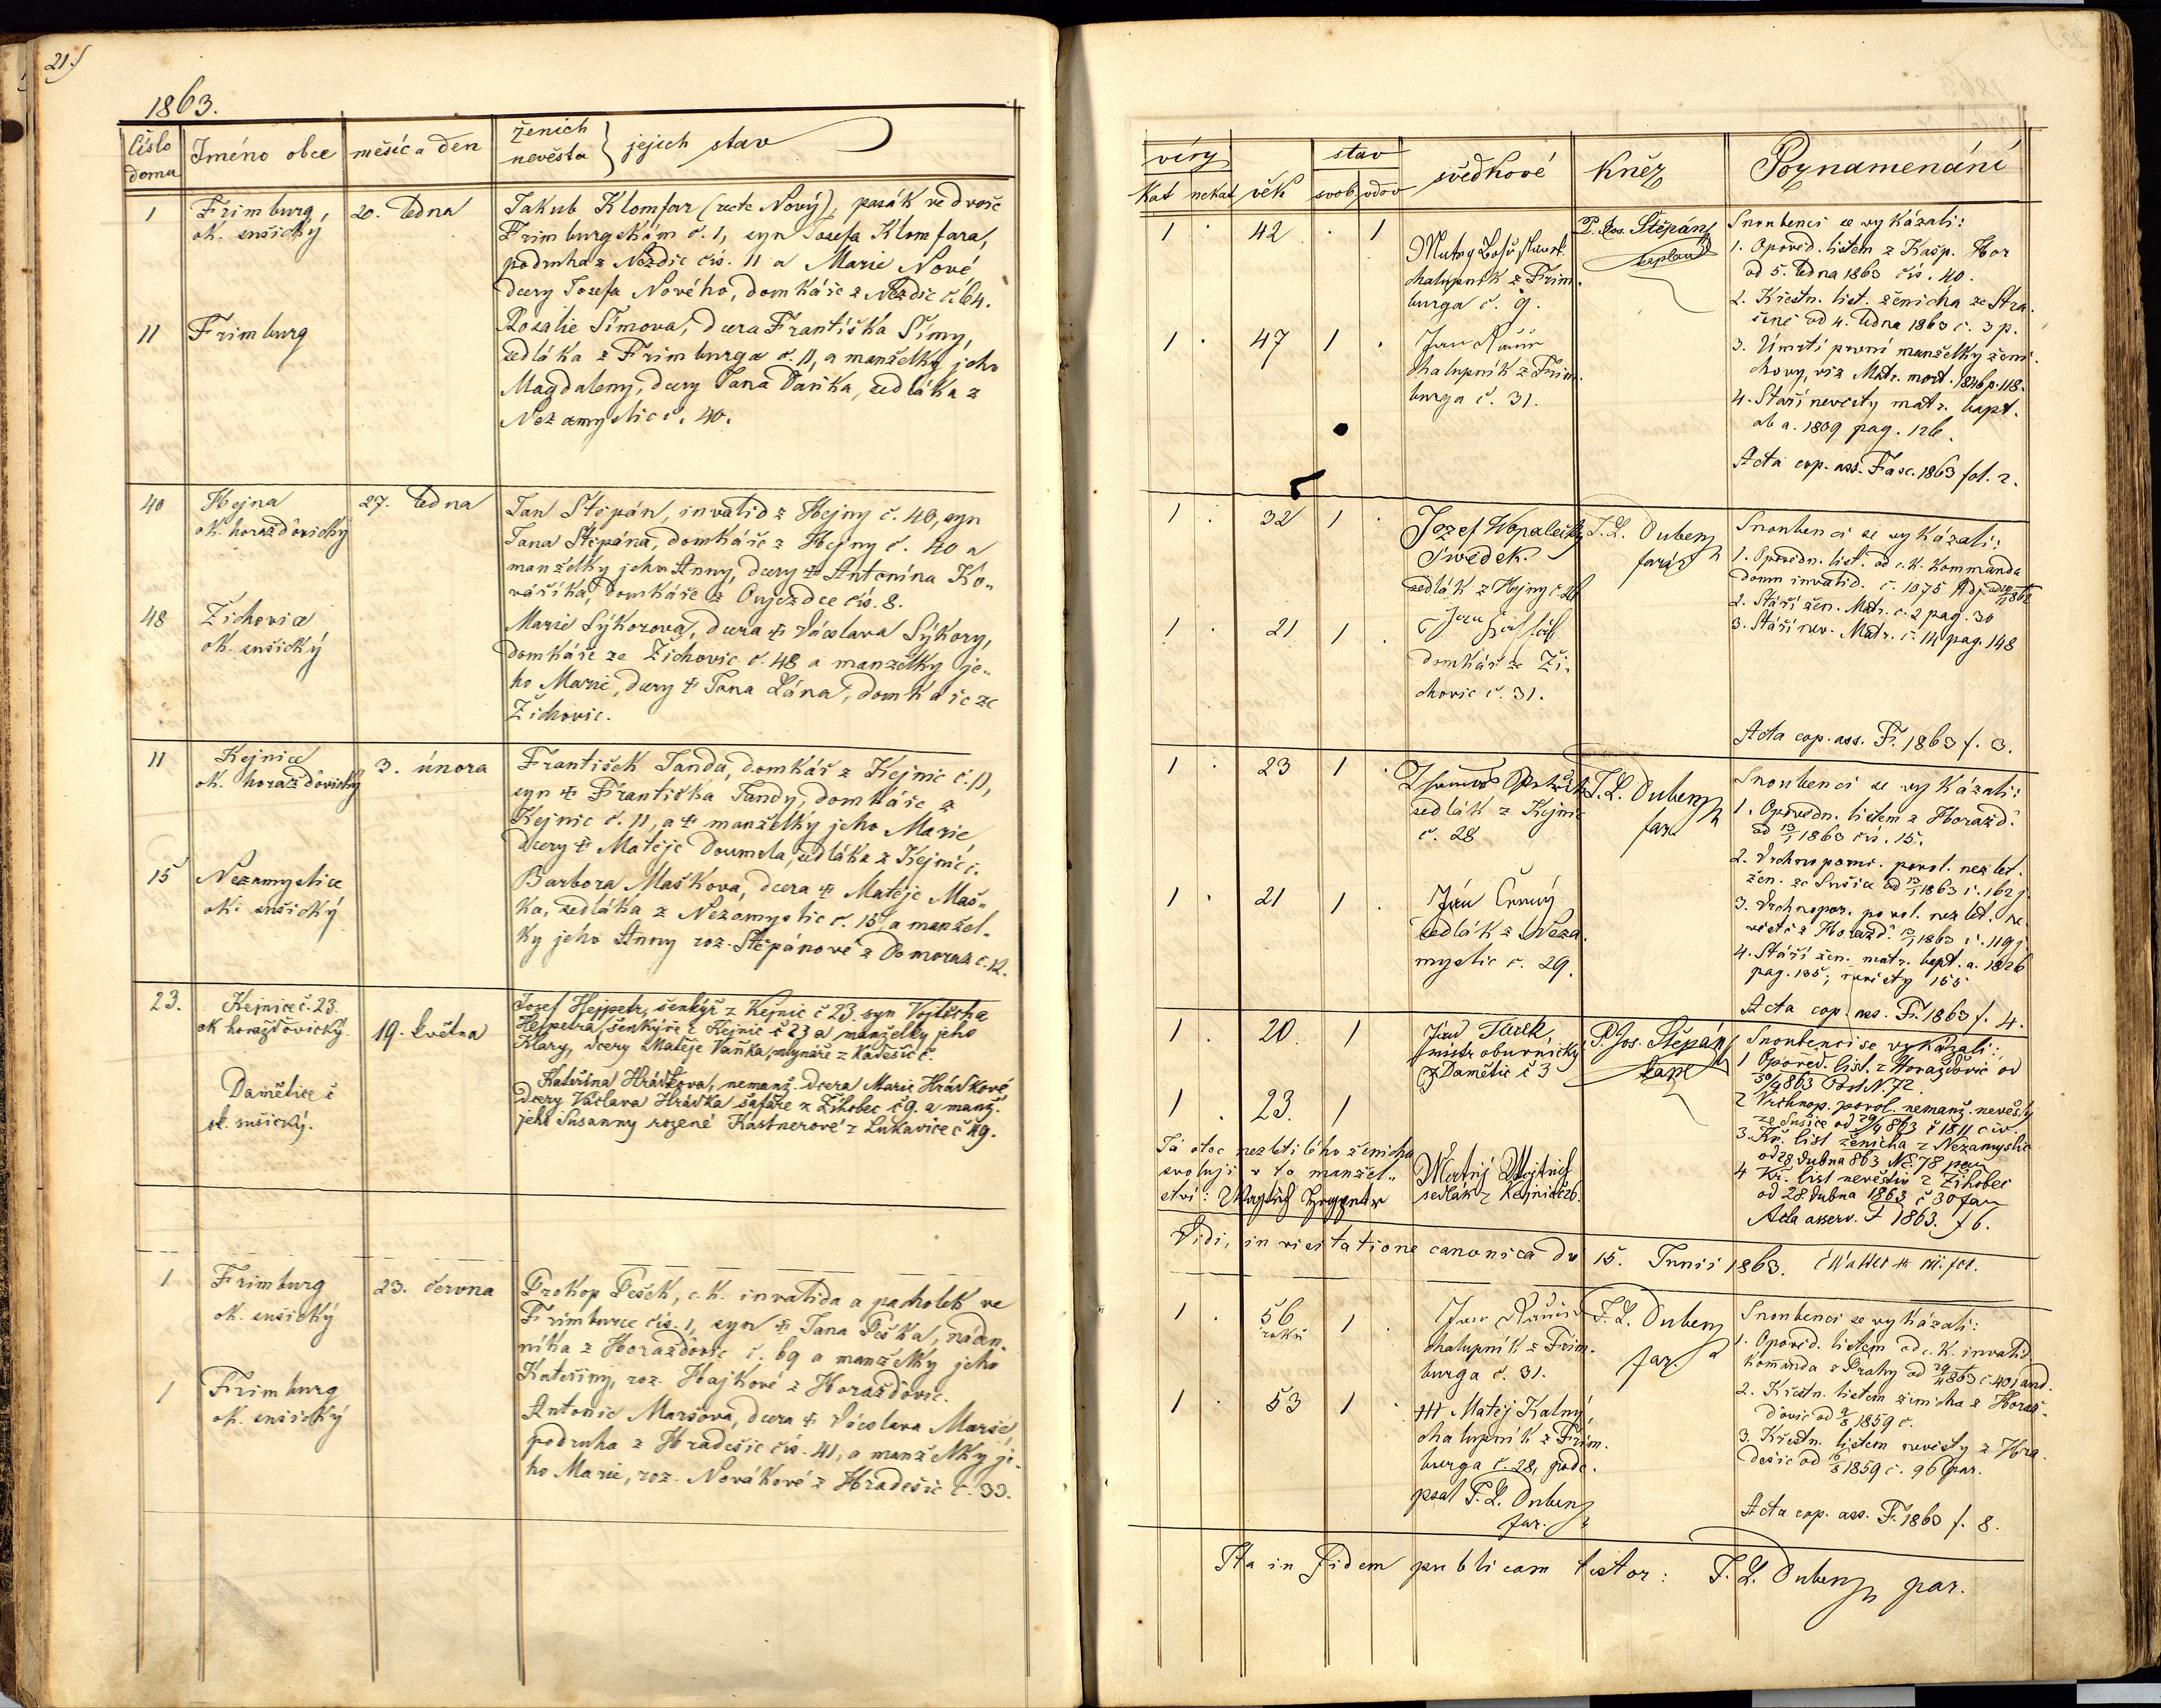 21.)
1863.
číslo
domu
Jméno obce
měsíc a den
ženich
nevěsta
jejich stav
1
Frimburg,
ok. sušický
20. ledna
Jakub Klomfar (recte Nový), pasák ve dvoře
Frimburgském č. 1, syn Josefa Klomfara,
podruha z Nezdic čís. 11 a Marie Nové
dcery Josefa Nového, domkáře z Nezdic č. 64.
11
Frimburg
Rozalie Šímova, dcera Františka Šímy,
sedláka z Frimburga č. 11, a manželky jeho
Magdaleny, dcery Jana Vaňka, sedláka z
Nezamyslic č. 40.
40
Hejna
ok. horažďovický
27. ledna
Jan Štěpán, invalid z Hejny č. 40, syn
Jana Štěpána, domkáře z Hejny č. 40 a
manželky jeho Anny, dcery † Antonína Ko-
váříka, domkáře z Oujezdce čís. 8.
48
Žichovice
ok. sušický
Marie Sýkorova, dcera † Václava Sýkory,
domkáře ze Žichovic č. 48 a manželky je-
ho Marie, dcery † Jana Lána, domkáře ze
Žichovic.
11
Kejnice
ok. horažďovický
3. února
František Janda, domkář z Kejnic č. 11,
syn † Františka Jandy, domkáře z
Kejnic č. 11, a † manželky jeho Marie,
dcery † Matěje Doumela, sedláka z Kejnic č.
15
Nezamyslice
ok. sušický
Barbora Maškova, dcera † Matěje Maš-
ka, sedláka z Nezamyslic č. 15, a manžel-
ky jeho Anny roz. Štěpánové z Domoraz č. 12.
23.
Kejnice č. 23.
ok horažďovický.
19. května
Josef Hejpetr, šenkýř z Kejnic č 23. syn Vojtěcha
Hejpetra, šenkýře z Kejnic č 23 a manželky jeho
Klary, dcery Matěje Vaňka, mlynáře z Kadešic č.
Damětice č
ok. sušický.
Kateřina Hrádkova, nemanž. dcera Marie Hrádkové
dcery Václava Hrádka šafáře z Žihobec č 9. a manž.
jeho Susanny rozené Kastnerové z Lukavice č 49.
1
Frimburg
ok. sušický
23. června
Prokop Pešek, c. k. invalida a pacholek ve
Frimburce čís. 1, syn † Jana Peška, náden-
níka z Horažďovic č. 69 a manželky jeho
Kateřiny, roz. Hajkové z Horažďovic.
1
Frimburg
ok. sušický
Antonie Maršova, dcera † Václava Marše,
podruha z Hradešic čís. 41, a manželky je-
ho Marie, roz. Novákové z Hradešic č. 33.
víry
kat nekat
věk
stav
svob vdov
svědkové
Kněz
Poznamenání
1 . 42 . 1
chalupník z Frim-
burga č. 9.
P. Jos. Štěpán
kaplan
Snoubenci se vykázali:
1. Opověd. listem z Kašp. Hor
od 5. ledna 1863 čís. 40.
2. Křestn. list. ženicha ze Stra-
šině od 4. ledna 1863 č. 3 p.
3. Úmrtí první manželky ženi-
chovy, viz Matr. mort. 1846 p. 118.
4. Stáří nevěsty matr. bapt.
ab a. 1809 pag. 126.
Acta cop. ass. Fasc. 1863 fol. 2.
1 . 47 1 .
Jan
chalupník z Frim-
burga č. 31.
1 . 32 1 .
Jozef
Swědek.
sedlák z Hejny č.
J. L. Dubenz
farář
Snoubenci se vykázali:
1. Opovědn. list. od c. k. Kommanda
domu invalid. č. 1075 Adj.
2. Stáří žen. Matr. č. 2 pag. 30
3. Stáří nev. Matr. č. 14 pag. 148
Acta cop. ass. F. 1863 f. 3.
1 . 21 1 .
domkář ze Ži-
chovic č. 31.
1 . 23 1 .
sedlák z Kejnic
č. 28
J. L. Dubenz
far.
Snoubenci se vykázali:
1. Opovědn. listem z Horažď.
od 13/1 1863 čís. 15.
2. Vrchnoporuč. povol. nezlet.
žen. ze Sušice od 13/1 1863 č. 162 j.
3. Vrchnopor. povol. nezlet. ne-
věstě z Horažď. 13/1 1863 č. 119 j.
4. Stáří žen. matr. bapt. a. 1826
pag. 135, nevěsty 155
Acta cop. ass. F. 1863 f. 4.
1 . 21 1 .
Jan Černý
sedlák z Neza-
myslic č. 29.
1. 20. 1
Jan
mistr obuvnický
z Damětic č 3
P. Jos. Štěpán
kapl
Snoubenci se vykázali:
1 Opověd. list. z Horažďovic od
30/4 863 Post N. 72.
2 Vrchnop. povol. nemanž. nevěsty
ze Sušice od 29/4 863 č 1811 civ.
3. Kř. list ženicha z Nezamyslic
od 28 dubna 863 N. 78
4 Kř. list nevěstin z Žihobec
od 28 dubna 1863 č 30 far
Acta asserv. F 1863. f 6.
1 . 23. 1
Já otec nezletilého ženicha
svoluji v to manžel-
ství:
Matěj
sedlák z Kejnic č 26.
Vidi, in visitatione canonica do 15. Junii 1863.
1 . 56 1 .
roků
Jan
chalupník z Frim-
burga č. 31.
J. L. Dubenz
far.
Snoubenci se vykázali:
1. Opověd. listem od c. k. invalid.
Komanda z Prahy od 29/4 863 č 401 and.
2. Křestn. listem ženicha z Horaž-
ďovic od 9/8 1859 č.
3. Křestn. listem nevěsty z Hra-
dešic od 16/8 1859 č. 96 par.
Acta cop. ass. F. 1863 f. 8.
1 . 53 1 .
††† Matěj Kalný,
chalupník z Frim-
burga č. 28, pode-
psal J. L. Dubenz
far.
Ita in fidem publicam testor: J. L. Dubenz par.